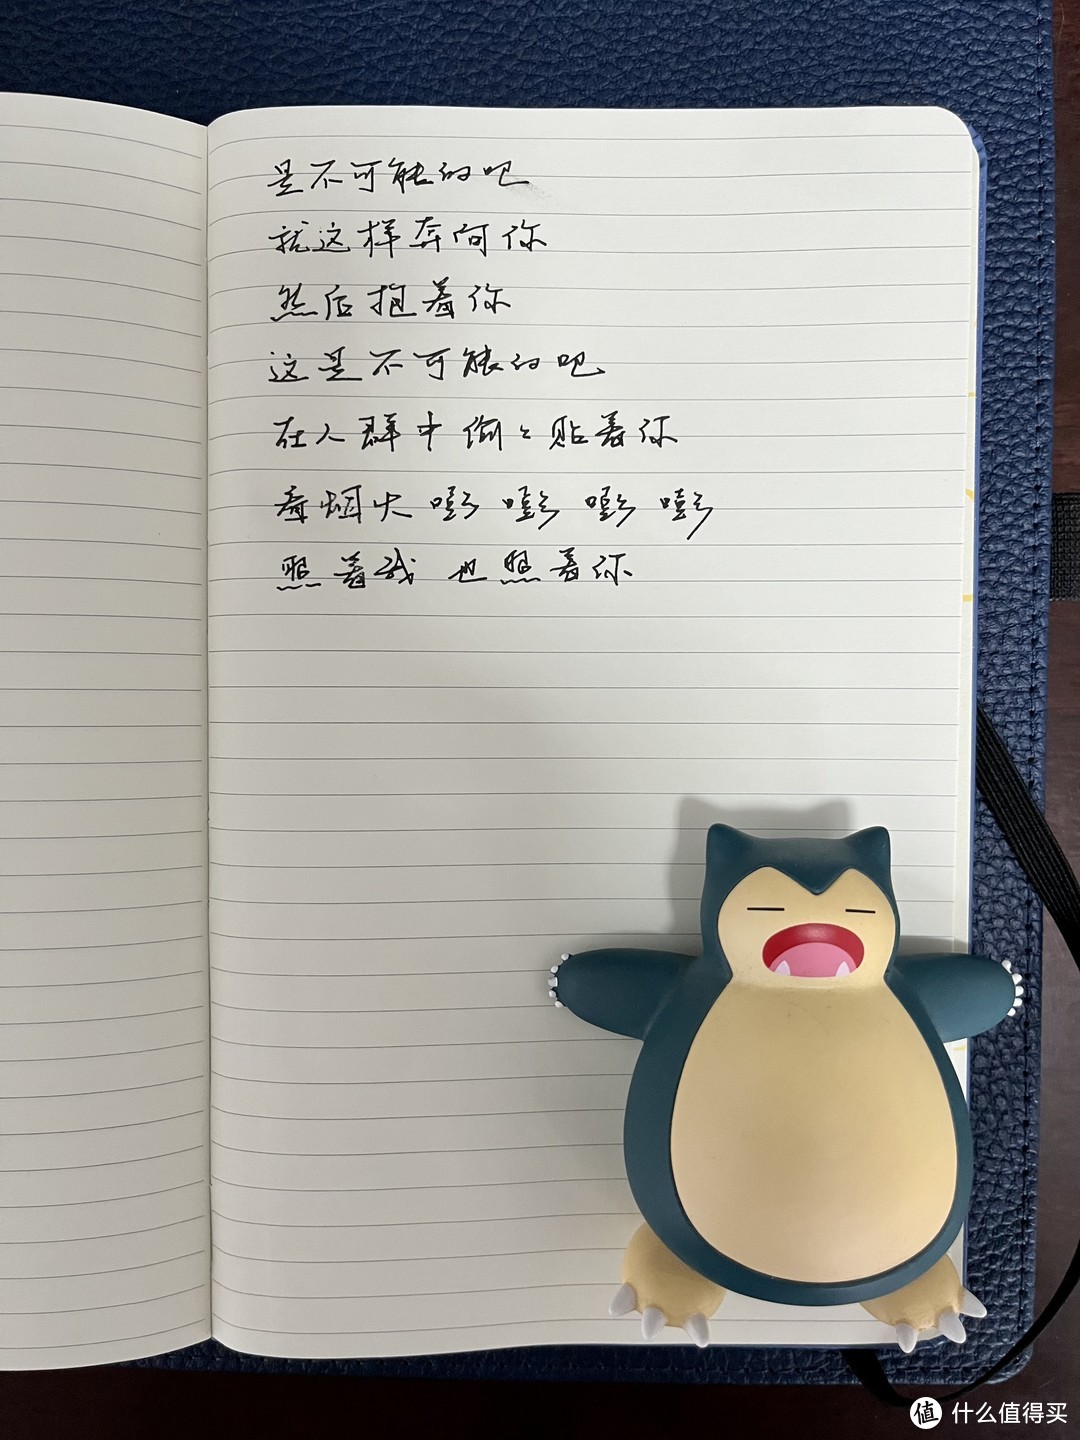 是不可能的吧
就这样奔向你
然后抱着你
这是不可能的吧
在人群中偷々贴着你
看烟火 嘭 嘭 嘭 嘭
照着我 也照着你
值 什么值得买